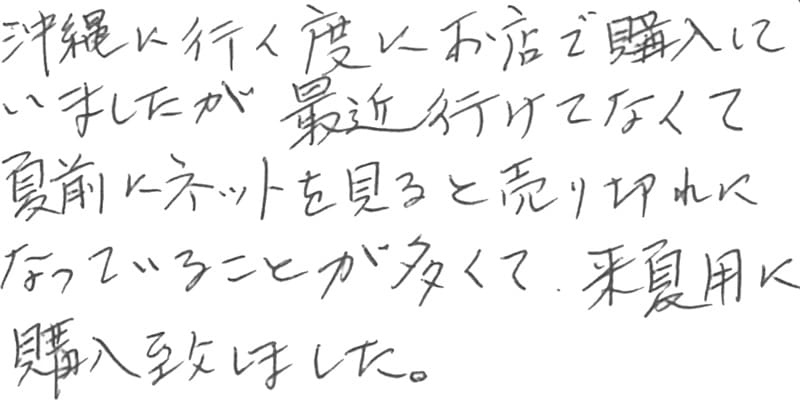 沖縄に行く度にお店で購入して
いましたが 最近行けてなくて
夏前にネットを見ると売り切れに
なっていることが多くて、来夏用に
購入致しました。